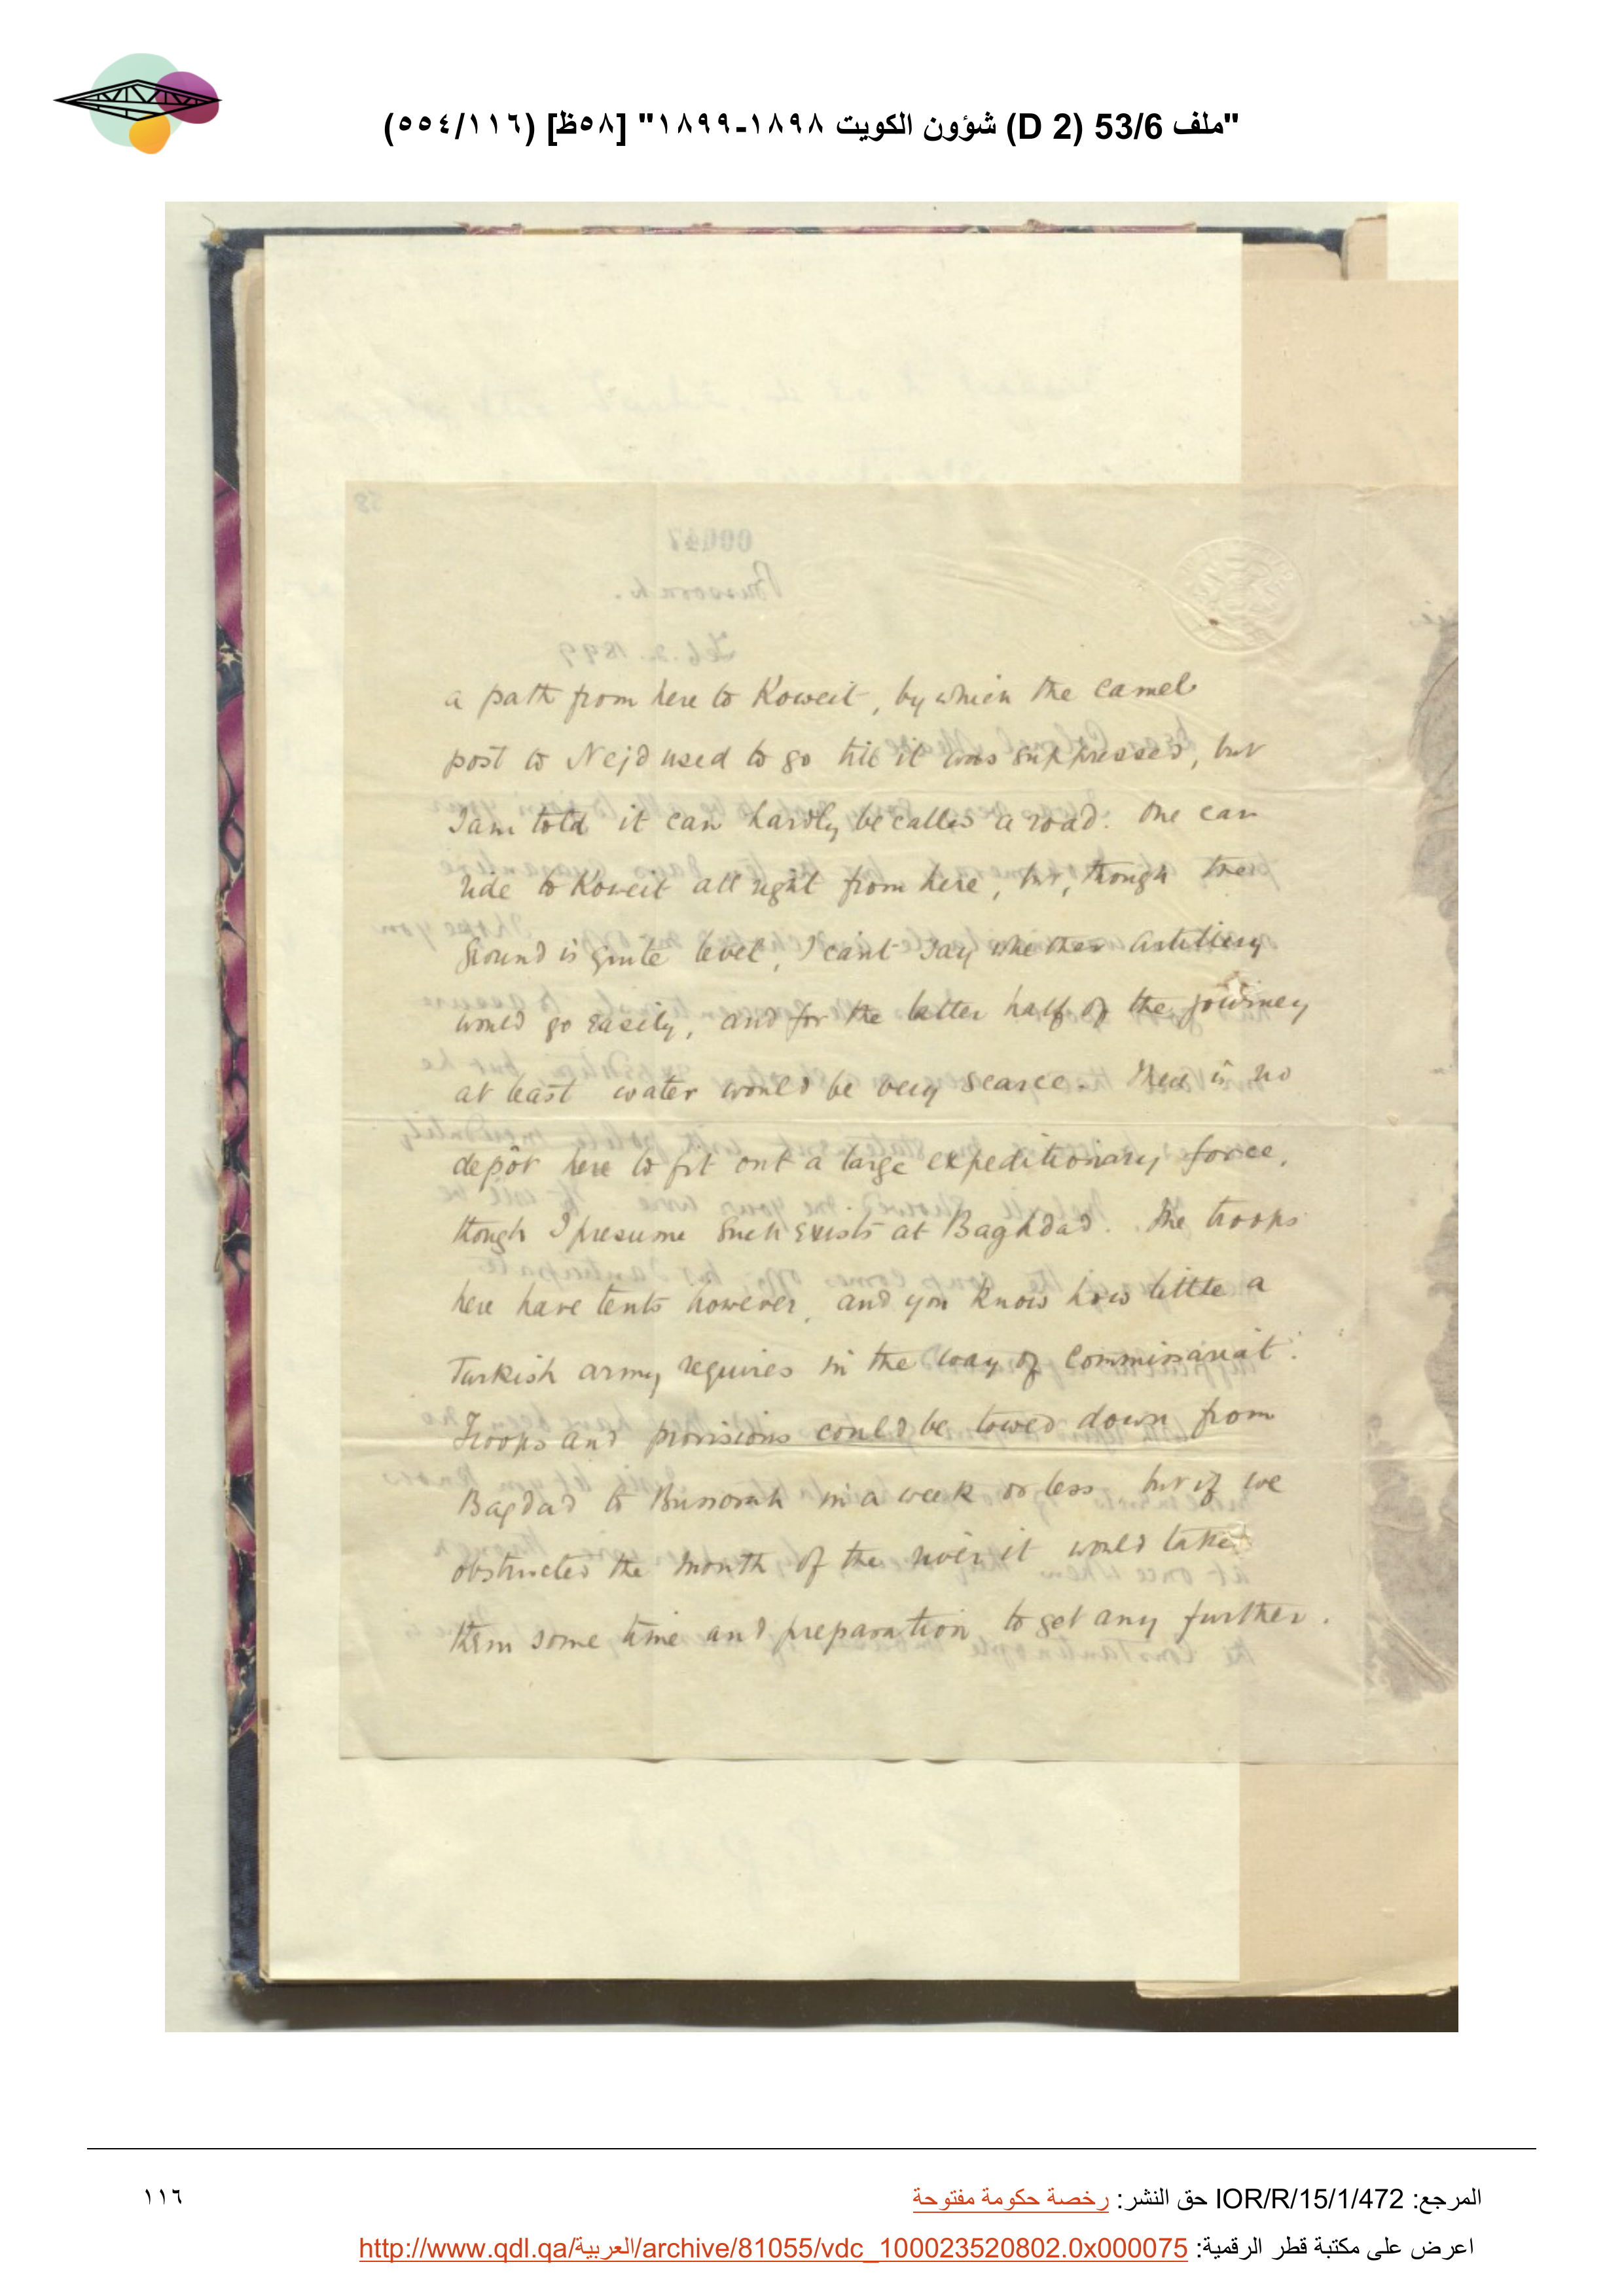 "ملف 53/6 (D 2) شؤون الكويت ١٨٩٨-١٨٩٩" [٥٨ظ] (٥٥٤/١١٦)
58
00047
Bussorah.
Feb. 2. 1899
a path from here to Koweit, by which the camel
post to Nejd used to go till it was suppressed, but
I am told it can hardly be called a road. One can
ride to Koweit all right from here, but, though the
ground is quite level, I can't say whether artillery
would go easily, and for the latter half of the journey
at least water would be very scarce. There is no
depôt here to fit out a large expeditionary force,
though I presume such exists at Baghdad. The troops
here have tents however, and you know how little a
Turkish army requires in the way of Commissariat.
Troops and provisions could be towed down from
Bagdad to Bussorah in a week or less, but if we
obstructed the mouth of the river it would take
them some time and preparation to get any further.
المرجع: IOR/R/15/1/472 حق النشر: رخصة حكومة مفتوحة
١١٦
اعرض على مكتبة قطر الرقمية: http://www.qdl.qa/العربية/archive/81055/vdc_100023520802.0x000075